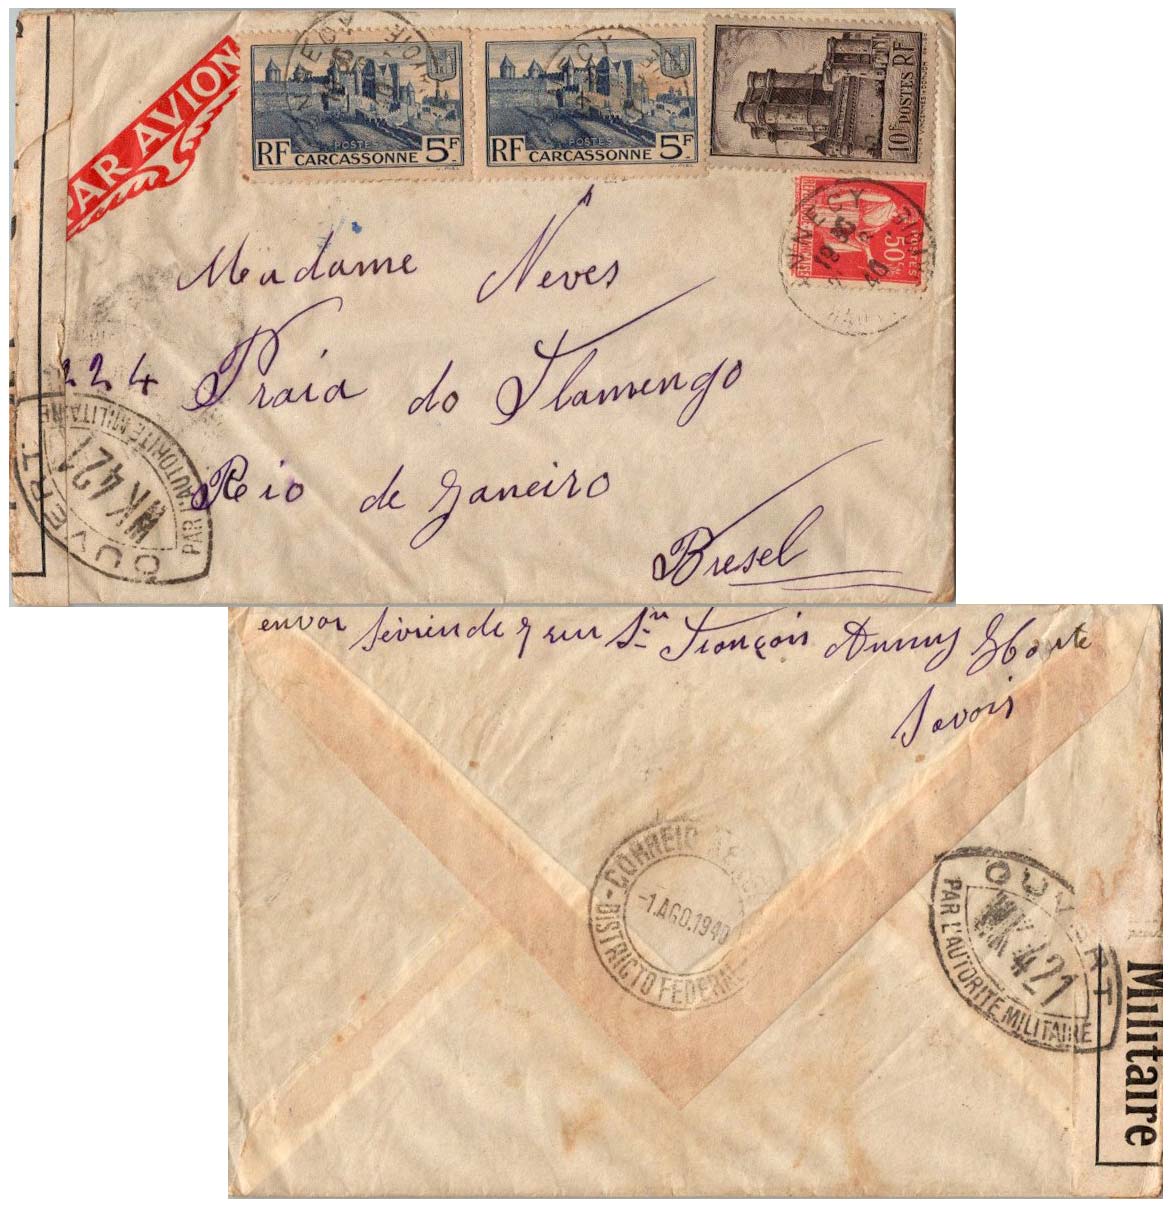 PAR AVION
RF POSTES CARCASSONNE 5F
RF POSTES CARCASSONNE 5F
10F POSTES RF
POSTES 50c
ANNECY
18 35
40
Madame Neves
224 Praia do Flamengo
Rio de Janeiro
Bresel
OUVERT
PAR L'AUTORITÉ MILITAIRE
WK 421
envoi
rue St François Annecy Haute
Savois
CORREIO
-1.AGO.1940
DISTRICTO FEDERAL
OUVERT
PAR L'AUTORITÉ MILITAIRE
WK 421
Militaire